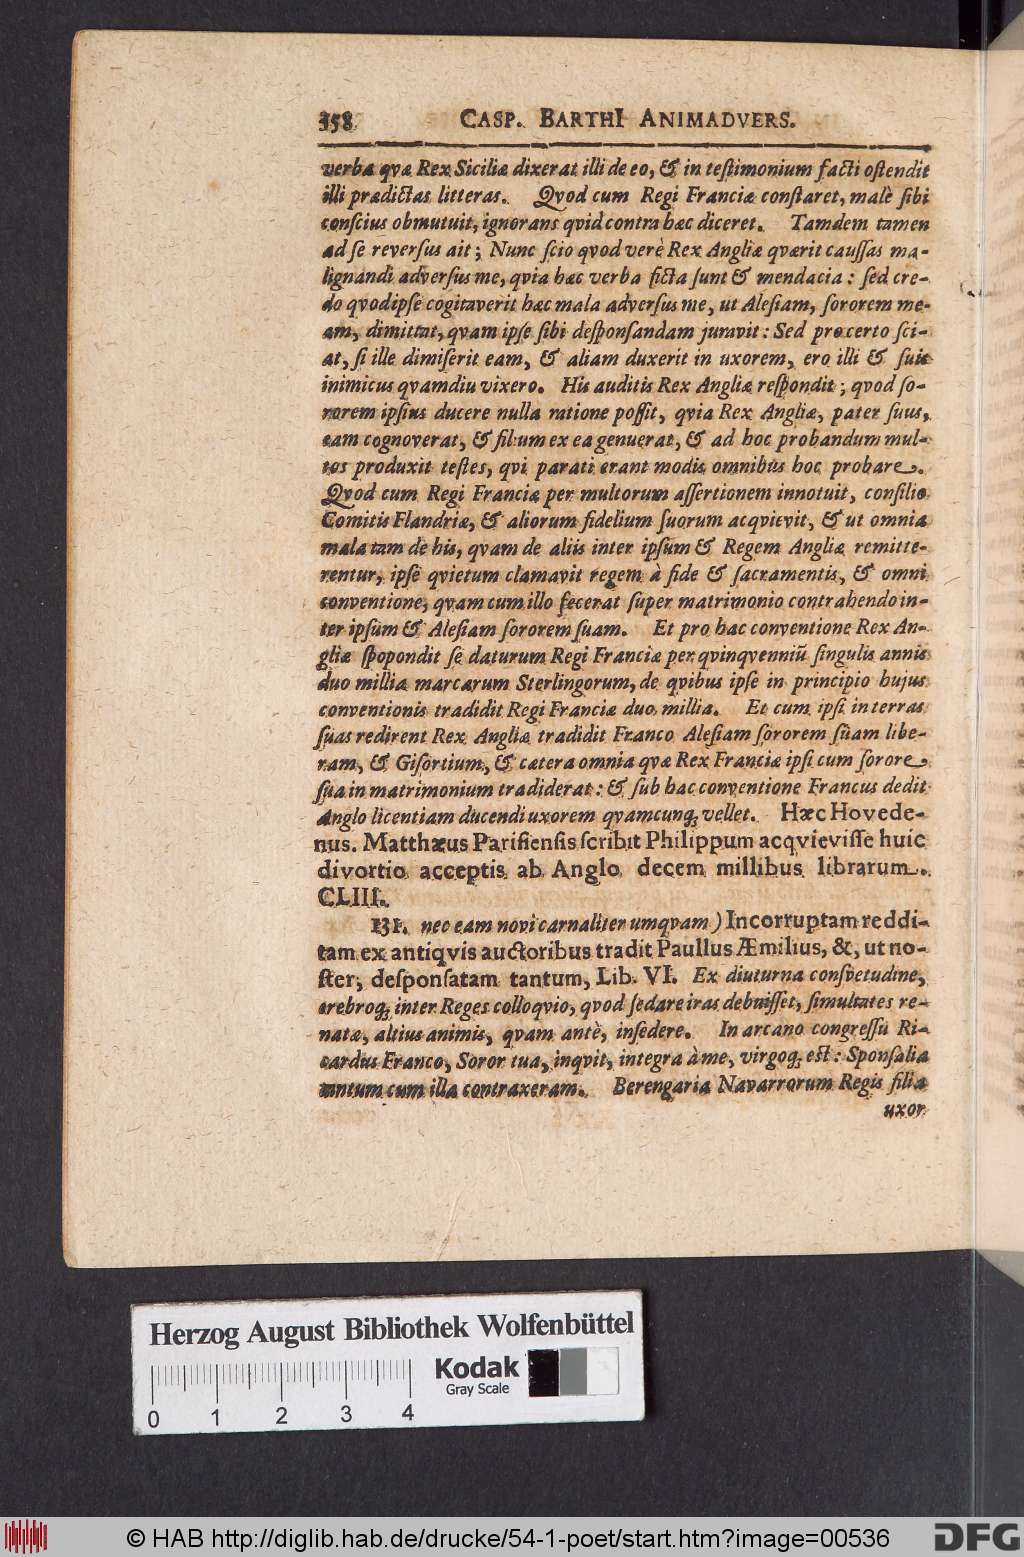 358 CASP. BARTHI ANIMADVERS.
verba qvæ Rex Siciliæ dixerat illi de eo, & in teſtimonium facti oſtendit
illi prædictas litteras. Qvod cum Regi Franciæ conſtaret, malè ſibi
conſcius obmutuit, ignorans qvid contra hæc diceret. Tamdem tamen
ad ſe reverſus ait; Nunc ſcio qvod verè Rex Angliæ qværit cauſſas ma-
lignandi adverſus me, qvia hæc verba ficta ſunt & mendacia: ſed cre-
do qvodipſe cogitaverit hæc mala adverſus me, ut Aleſiam, ſororem me-
am, dimittat, qvam ipſe ſibi deſponſandam juravit: Sed procerto ſci-
at, ſi ille dimiſerit eam, & aliam duxerit in uxorem, ero illi & ſuis
inimicus qvamdiu vixero. His auditis Rex Angliæ reſpondit; qvod ſo-
rorem ipſius ducere nulla ratione poſſit, qvia Rex Angliæ, pater ſuus,
eam cognoverat, & filium ex ea genuerat, & ad hoc probandum mul-
tos produxit teſtes, qvi parati erant modis omnibus hoc probare.
Qvod cum Regi Franciæ per multorum aſſertionem innotuit, conſilio
Comitis Flandriæ, & aliorum fidelium ſuorum acqvievit, & ut omnia
mala tam de his, qvam de aliis inter ipſum & Regem Angliæ remitte-
rentur, ipſe qvietum clamavit regem à fide & ſacramentis, & omni
conventione, qvam cum illo fecerat ſuper matrimonio contrahendo in-
ter ipſum & Aleſiam ſororem ſuam. Et pro hac conventione Rex An-
gliæ ſpopondit ſe daturum Regi Franciæ per qvinqvenniũ ſingulis annis
duo millia marcarum Sterlingorum, de qvibus ipſe in principio hujus
conventionis tradidit Regi Franciæ duo millia. Et cum ipſi in terras
ſuas redirent Rex Angliæ tradidit Franco Aleſiam ſororem ſuam libe-
ram, & Giſortium, & cætera omnia qvæ Rex Franciæ ipſi cum ſorore
ſua in matrimonium tradiderat: & ſub hac conventione Francus dedit
Anglo licentiam ducendi uxorem qvamcunq; vellet. Hæc Hovede-
nus. Matthæus Pariſienſis ſcribit Philippum acqvieviſſe huic
divortio acceptis ab Anglo decem millibus librarum.
CLIII.
131. nec eam novi carnaliter umqvam) Incorruptam reddi-
tam ex antiqvis auctoribus tradit Paullus Æmilius, &, ut no-
ſter, deſponſatam tantum, Lib. VI. Ex diuturna conſvetudine,
crebroq; inter Reges colloqvio, qvod ſedare iras debuiſſet, ſimultates re-
natæ, altius animis, qvam antè, inſedere. In arcano congreſſu Ri-
cardus Franco, Soror tua, inqvit, integra à me, virgoq; eſt: Sponſalia
tantum cum illa contraxeram. Berengaria Navarrorum Regis filia
uxor
Herzog August Bibliothek Wolfenbüttel
Kodak
Gray Scale
0 1 2 3 4
© HAB http://diglib.hab.de/drucke/54-1-poet/start.htm?image=00536
DFG